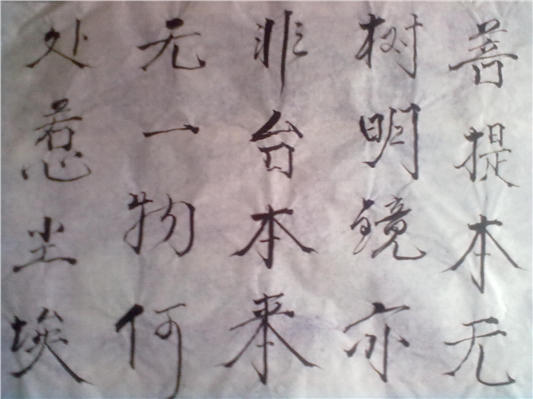 菩提本无
树明镜亦
非台本来
无一物何
处惹尘埃